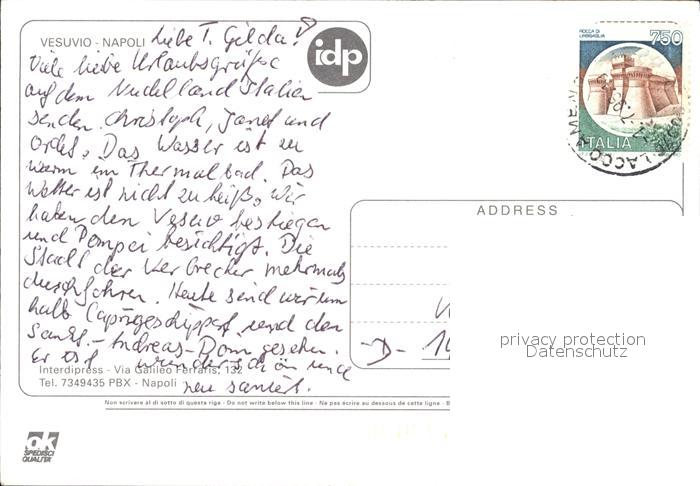 VESUVIO - NAPOLI
idp
Liebe T. Gilda!
Viele liebe Urlaubsgrüße
auf dem Italien
senden Christoph, Janet und
Das Wasser ist zu
warm im Thermalbad. Das
Wetter ist nicht zu heiß. Wir
haben den Vesuv bestiegen
und Pompei besichtigt. Die
Stadt der Verbrecher mehrmals
durchfahren. Heute sind wir um
halb Capri geschippert und den
Sankt-Andreas-Dom gesehen.
Er ist wunderschön und
neu saniert.
Interdipress - Via Galileo Ferraris, 132
Tel. 7349435 PBX - Napoli
Non scrivere al di sotto di questa riga - Do not write below this line - Ne pas écrire au dessous de cette ligne - B
ok
SPEDISCI
QUALITA'
ROCCA DI
URBISAGLIA
750
ITALIA
LACCO AMENO
ADDRESS
-D- 1
privacy protection
Datenschutz